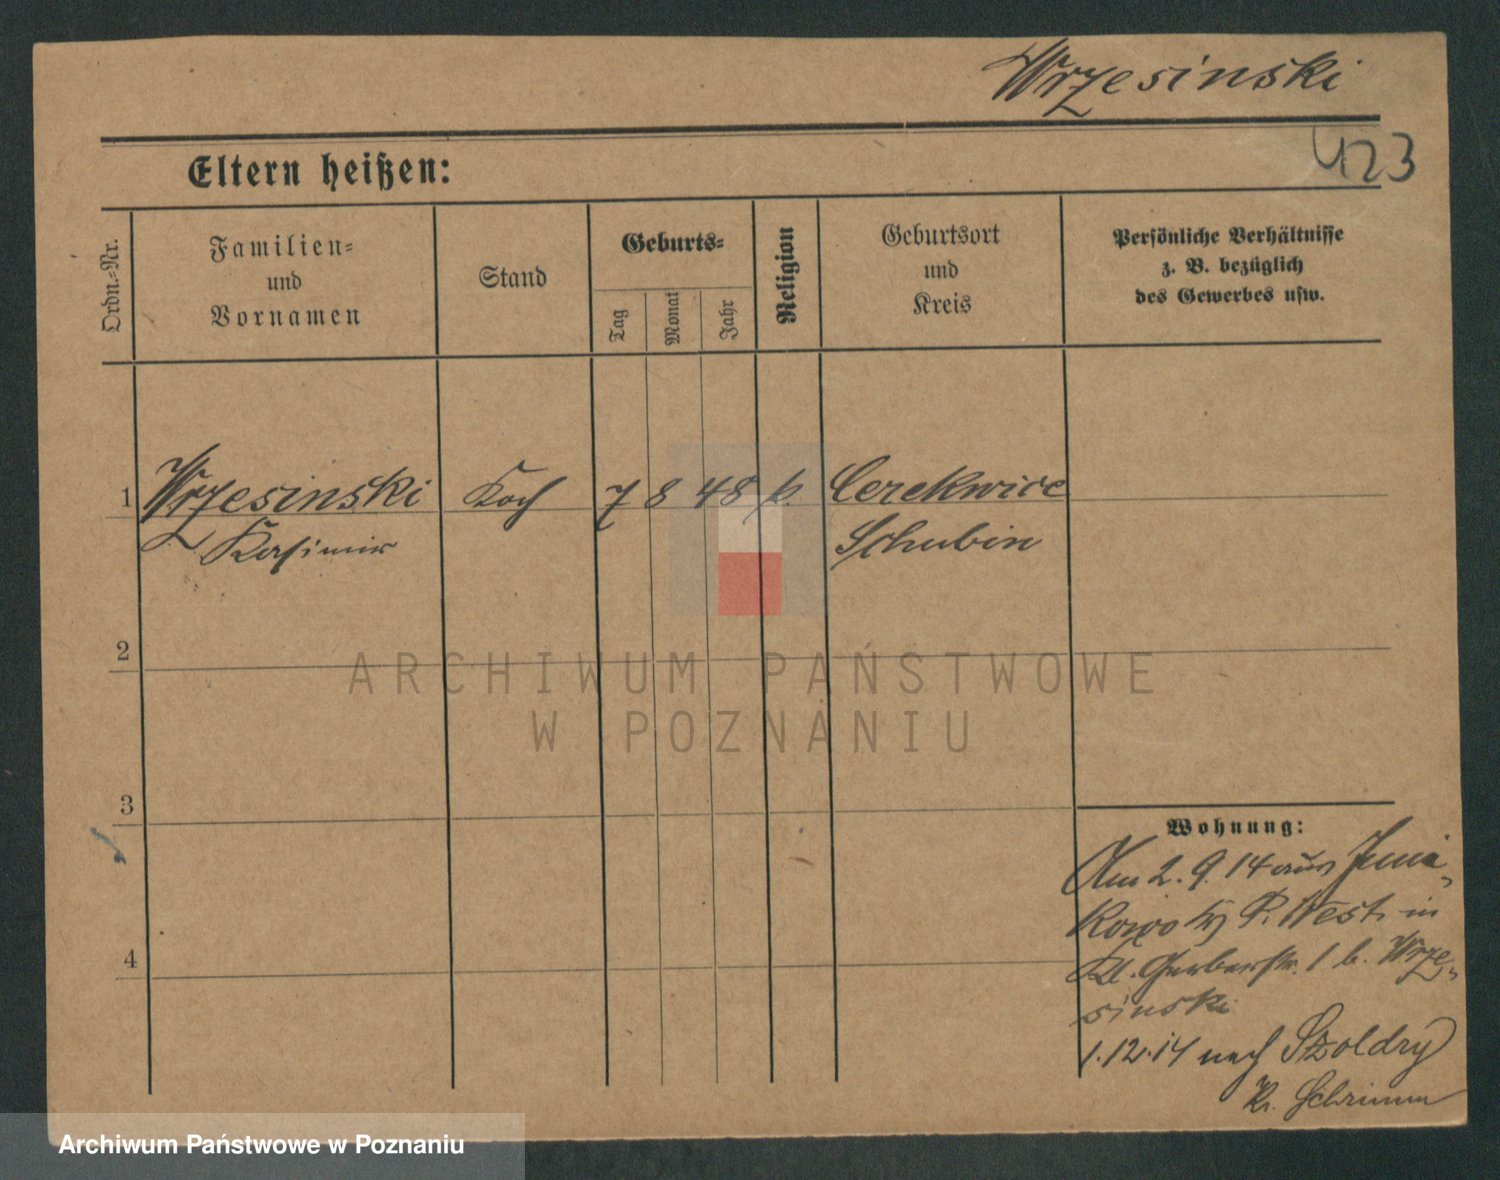 Wrzesinski
423
Eltern heißen:
Ordn.-Nr.
Familien-
und
Vornamen
Stand
Geburts-
Tag
Monat
Jahr
Religion
Geburtsort
und
Kreis
Persönliche Verhältnisse
z. B. bezüglich
des Gewerbes usw.
1 Wrzesinski Koch 7 8 48 k. Cerekwice
Kasimir Schubin
2
3
4
Wohnung:
Am 2. 9. 14 aus
P. West. in
Kl. Gerberstr. 1 b. Wrze-
sinski
1.12.14 nach Szoldry
Kr. Schrimm
ARCHIWUM PAŃSTWOWE
W POZNANIU
Archiwum Państwowe w Poznaniu